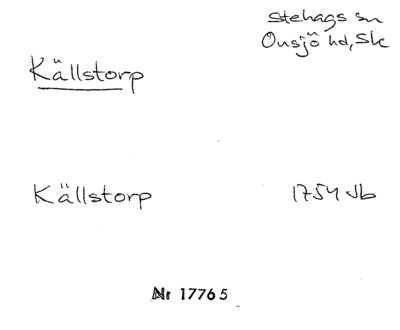 Stehags sn
Onsjö hd, Sk
Källstorp
Källstorp 1754 Jb
Nr 17765